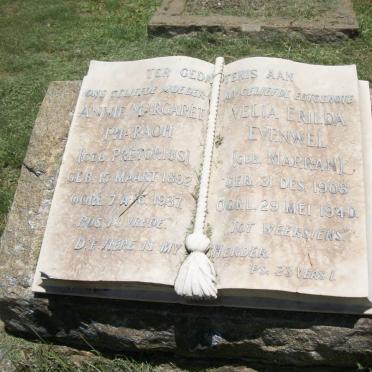 TER GEDAGTENIS AAN
ONS GELIEFDE MOEDER
ANNIE MARGARET
PHARAOH
(GEB. PRETORIUS)
GEB. 15 MAART 1892
OORL. 7 AUG. 1937.
"RUS IN VREDE"
EN GELIEFDE EGGENOTE
VELIA ERILDA
EVENWEL
(GEB. MARRIAN)
GEB. 31 DES. 1908
OORL. 29 MEI 1940.
"TOT WEERSIENS"
D'E HERE IS MY HERDER.
PS. 23 VERS 1.